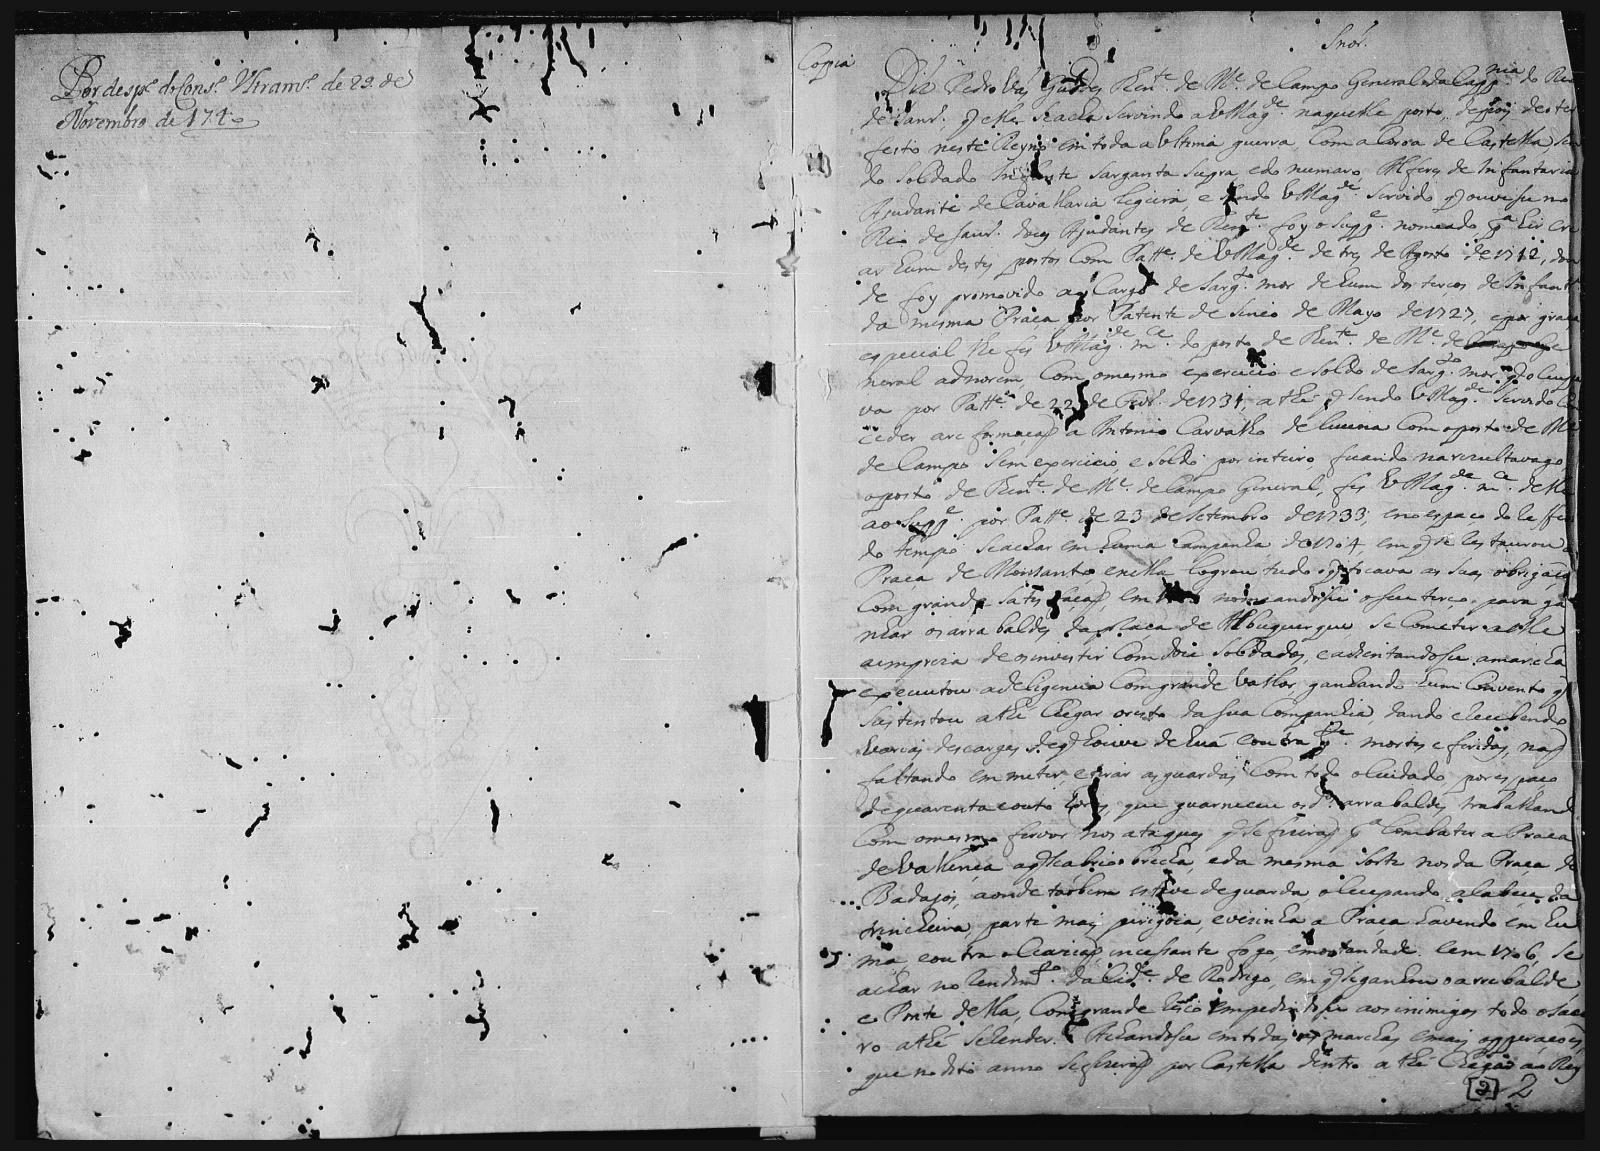 Por desp.º do Cons.º Ultram.º de 29. de
Novembro de 174
Copia
Snõr.
Diz Pedro Guedes Then.te de M.e de Campo General da Capp.nia do Rio
de Janr.º, q elle se acha servindo a V Mag.de naquelle posto, depois de o ter
feito neste Reyno em toda a ultima guerra, com a Coroa de Castella, sen
do Soldado Infante Sargento Supra, e do numaro, Alferes de Infantaria
Ajudante de Cavallaria ligeira, e sendo V Mag.de servido q ouvesse no
Rio de Janr.º dous Ajudantes de Then.te foy o Supp.e nomeado p.a hir cre
ar hum destes postos com Patt.e de V Mag.de de tres de Agosto de 1712, don
de foy promovido ao Cargo de Sarg.to mor de hum dos terços de Infant.ª
da mesma Praça por Patente de sinco de Mayo de 1727, e por graça
especial lhe fes V Mag.de m.ce do posto de Then.te de M.e de Ge
neral adhonorem, com o mesmo exercicio e soldo de Sarg.to mor q occupa
va por Patt.e de 22 de Fevr.º de 1731, athé q sendo V Mag.de servido con
ceder a reformaçaõ a Antonio Carvalho de Lucena com o posto de M.e
de Campo sem exercicio e soldo por inteiro, ficando vago
o posto de Then.te de M.e de Campo General, fes V Mag.de m.ce delle
ao Supp.e por Patt.e de 23 de Setembro de 1733, e no espaço do
do tempo se achar em huma Campanha de 1704, em q se restaurou a
Praça de Monsanto e nella logrou tudo q tocava as suas obrigações
com grande satisfaçaõ, em nomeandose o seu terço para ga
nhar os arrabaldes da praça de Albuquerque se cometer a elle
a empreza de os investir com doze Soldados, e adientandose a marcha
executou a deligencia com grande vallor, ganhando hum Convento q
sustentou athé chegar o resto da sua Companhia, dando e recebendo
varias descargas de q houve de huá e outra p.te mortes e feridas, naõ
faltando em meter e tirar as guardas com todo o cuidado por espaço
de quarenta e outo horas, que guarneceu os d.os arrabaldes, trabalhando
com o mesmo fervor nos ataques q se fizeraõ p.a combater a Praça
de Vallença a q se abrio brecha, e da mesma sorte nos da Praça de
Badajos, aonde tambem esteve de guarda, occupando a cabeça da
trincheira, parte mais perigoza, e vezinha a Praça havendo em hu
ma e outra occaziaõ incessante fogo, e mortandade. Em 1706, se
achar no rendim.to da Cid.e de Rodrigo, em q se ganhou o arrebalde,
e Ponte della, com grande risco impedindose aos inimigos todo o soco
ro athé se render. Achandose em todas as marchas e mais opperaçoes,
que no dito anno se fizeraõ por Castella dentro athé chegar ao Rey
[2] 2